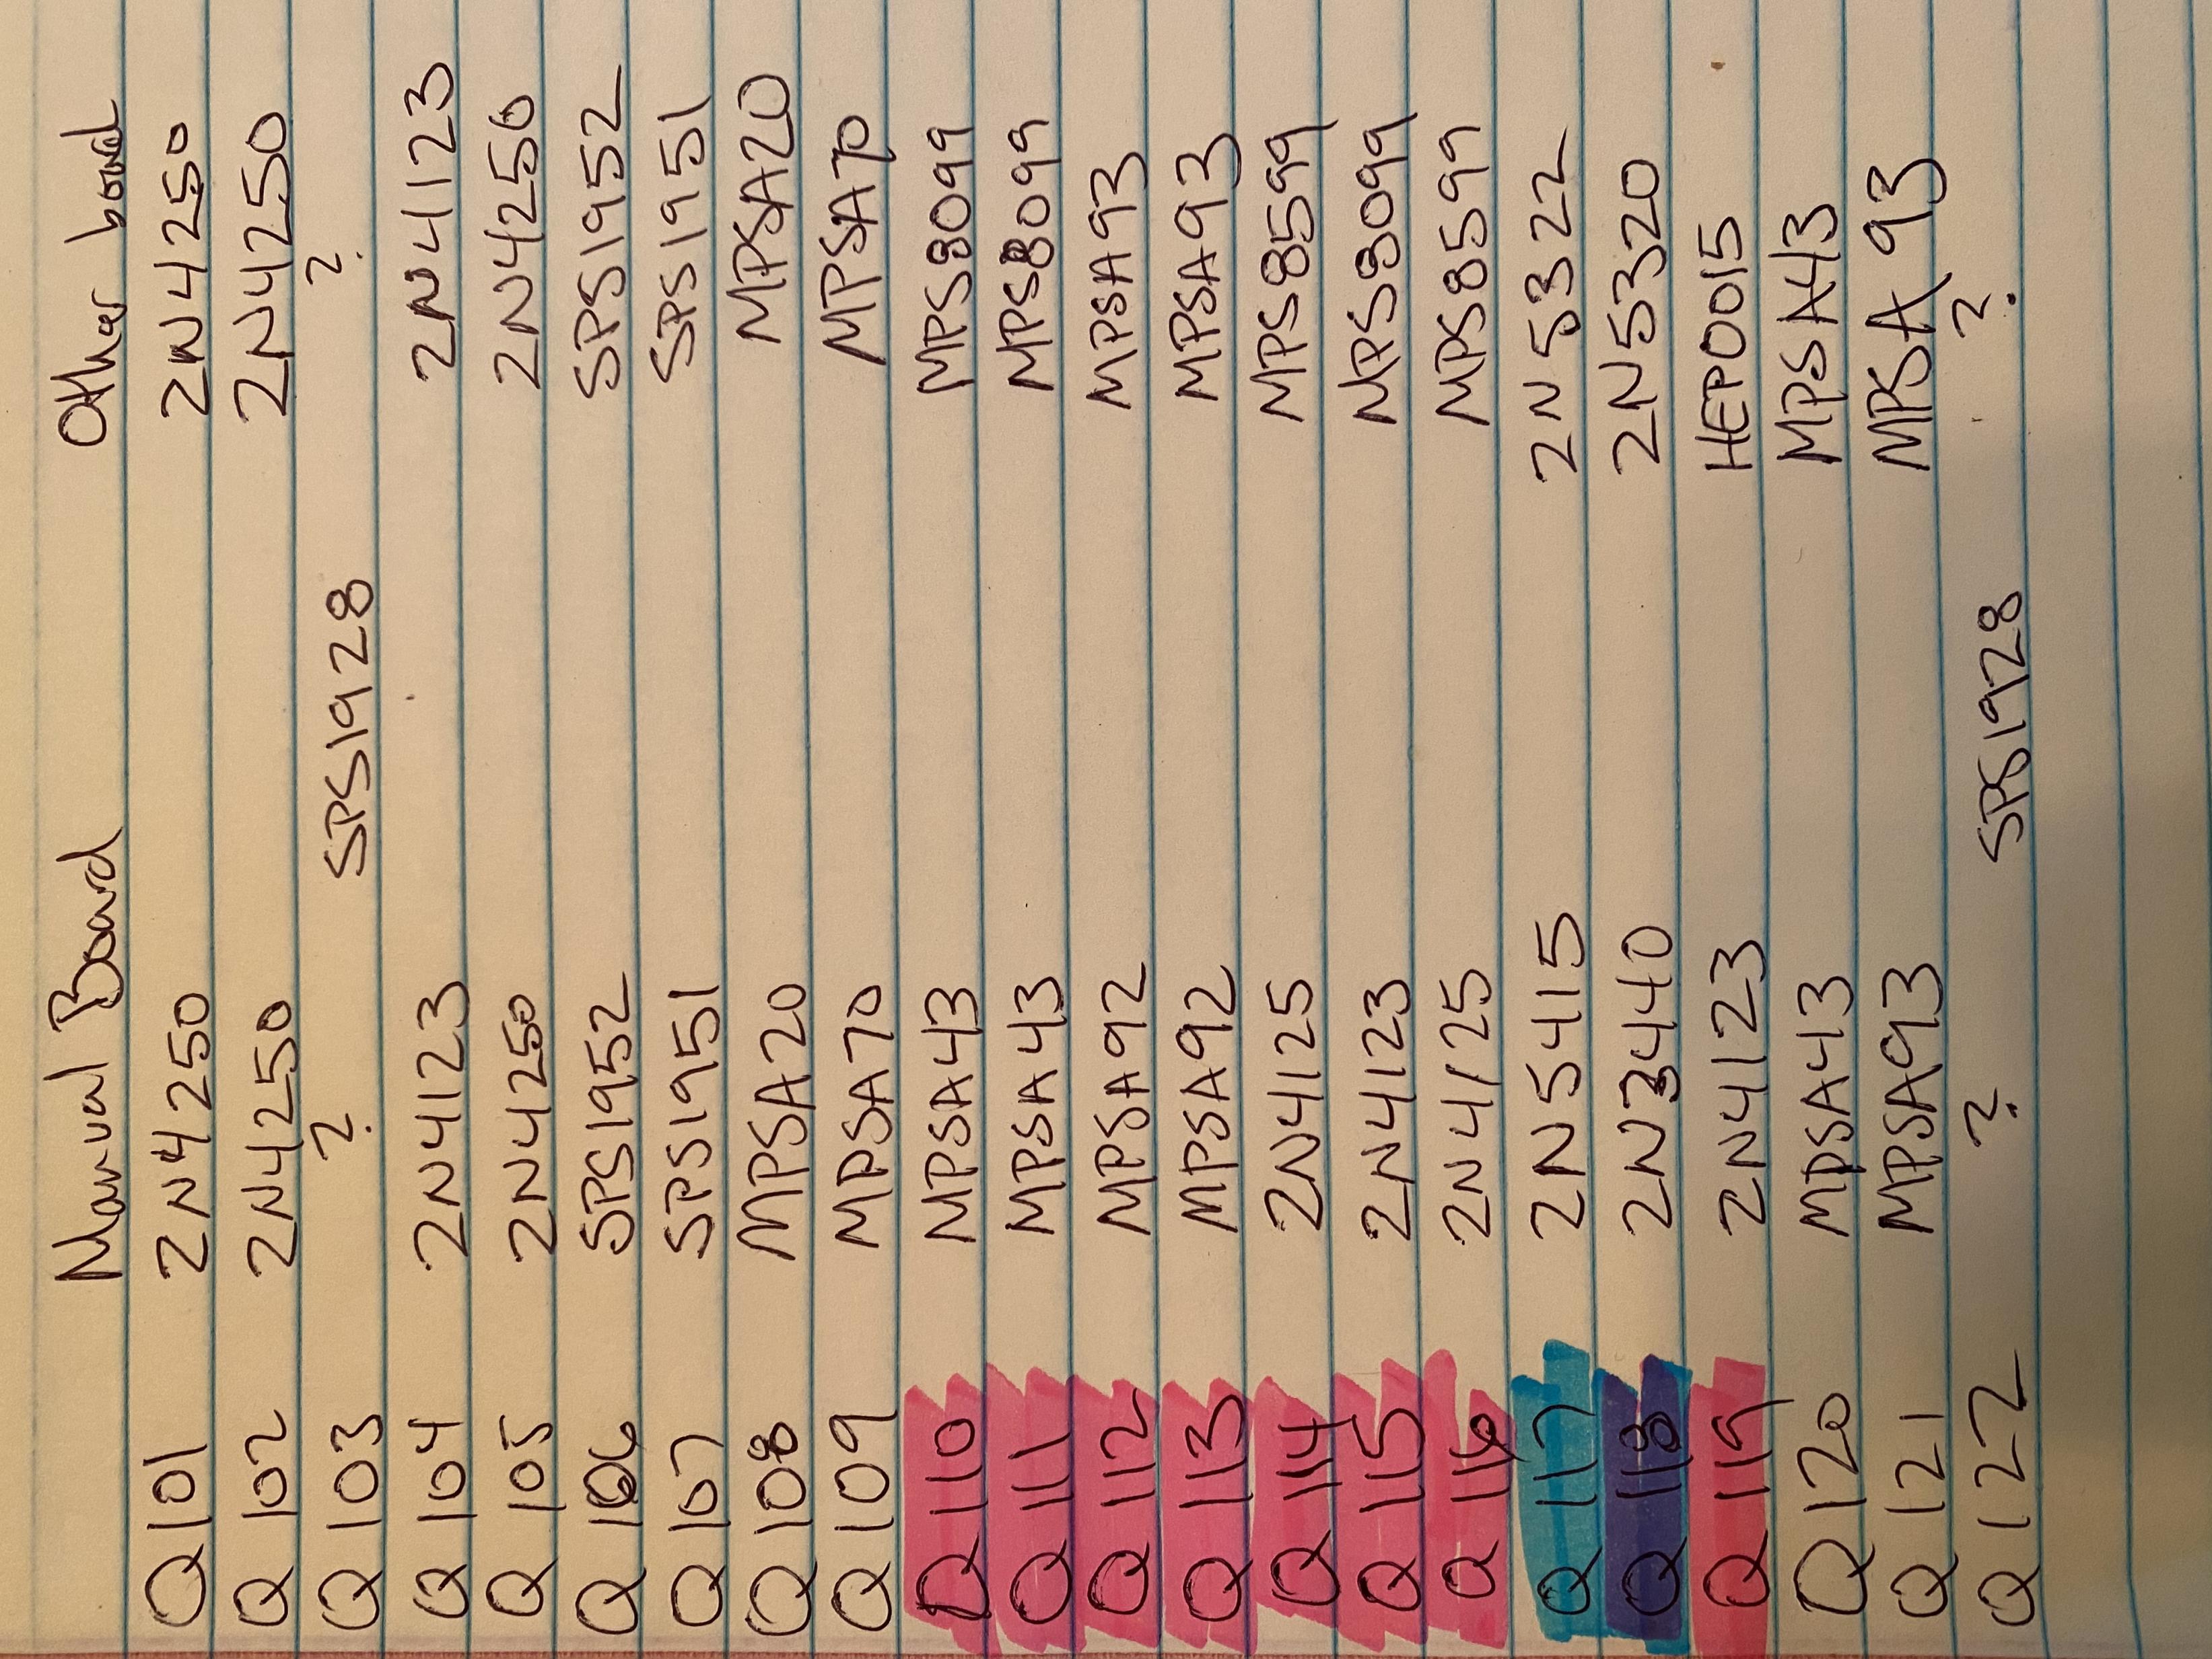 Manual Board Other board
Q101 2N4250 2N4250
Q 102 2N4250 2N4250
Q 103 ? SPS1928 ?
Q 104 2N4123 2N4123
Q 105 2N4250 2N4250
Q 106 SPS1952 SPS1952
Q 107 SPS1951 SPS1951
Q 108 MPSA20 MPSA20
Q 109 MPSA70 MPSA70
Q 110 MPSA43 MPS8099
Q 111 MPSA43 MPS8099
Q 112 MPSA92 MPSA93
Q 113 MPSA92 MPSA93
Q 114 2N4125 MPS8599
Q 115 2N4123 MPS8099
Q 116 2N4125 MPS8599
Q 117 2N5415 2N5322
Q 118 2N3440 2N5320
Q 119 2N4123 HEP0015
Q 120 MPSA43 MPSA43
Q 121 MPSA93 MPSA93
Q 122 ? SPS1928 ?